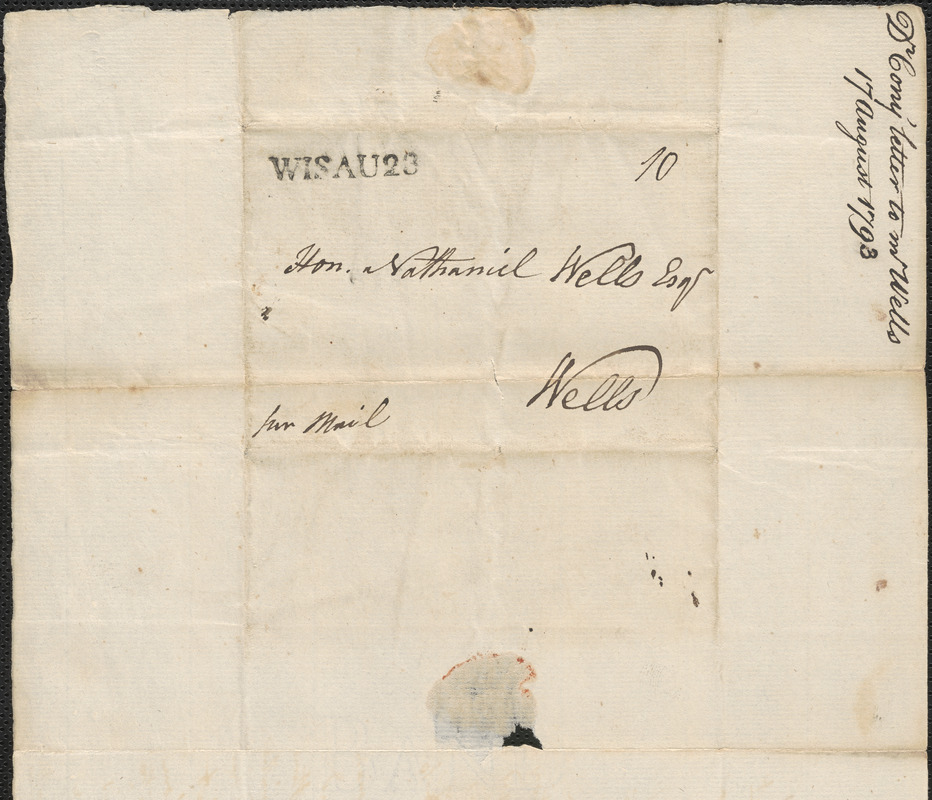 WISAU23
10
Hon. Nathaniel Wells Esqr
Wells
per Mail
Dr Cony letter to mr Wells
17 August 1793